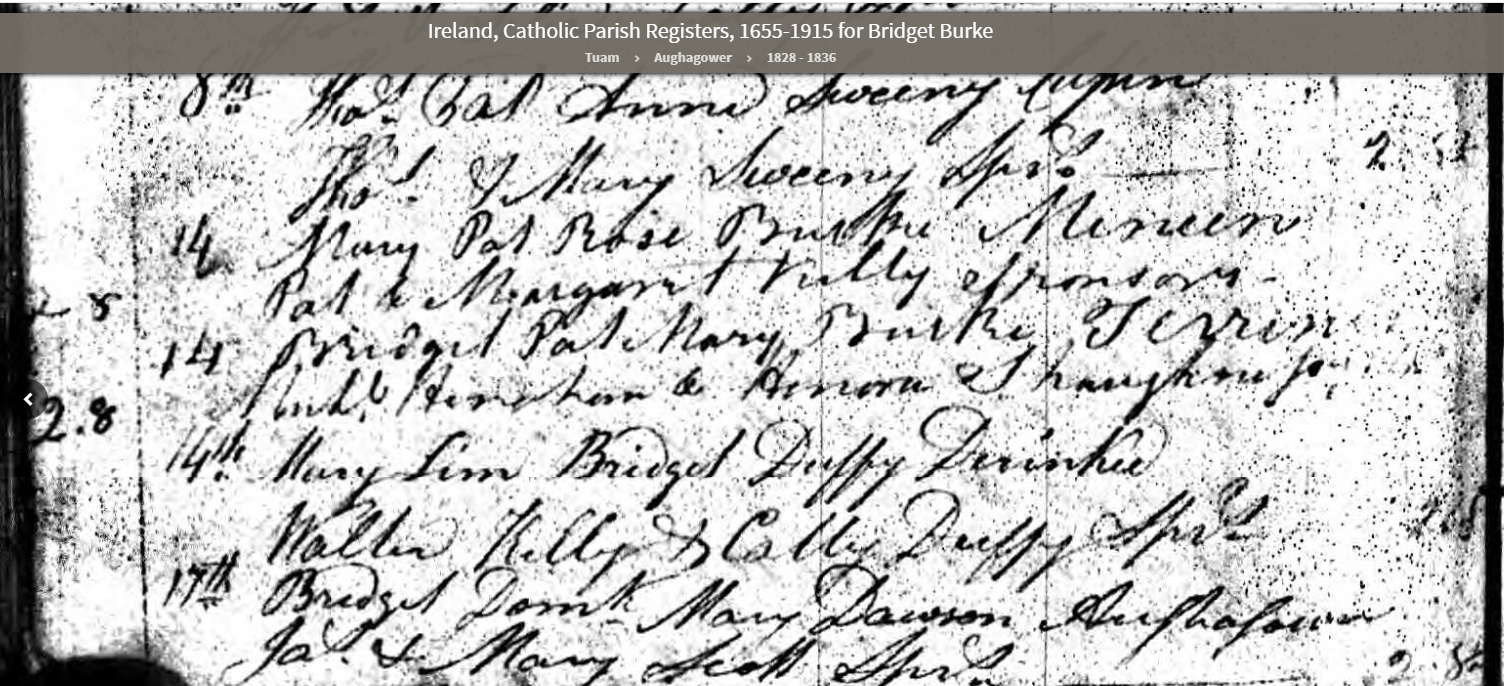 Ireland, Catholic Parish Registers, 1655-1915 for Bridget Burke
Tuam › Aughagower › 1828 - 1836
8th Thos Pat Anne Sweeny
Thos & Mary Sweeny Sprs
14 Mary Pat Rose Burke
Pat & Margaret Kelly Sponsors
2 8
14 Bridget Pat Mary Burke
& Honora
2.8
14th Mary Bridget Duffy Derinkee
Walter Kelly & Catty Duffy Sprs
17th Bridget Domk Mary Dawson Aughagower
Jas & Mary Scott Sprs